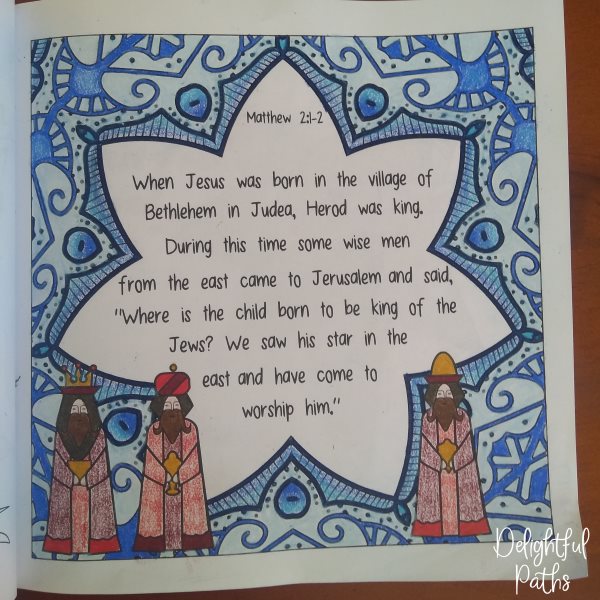 Matthew 2:1-2
When Jesus was born in the village of
Bethlehem in Judea, Herod was king.
During this time some wise men
from the east came to Jerusalem and said,
"Where is the child born to be king of the
Jews? We saw his star in the
east and have come to
worship him."
Delightful
Paths